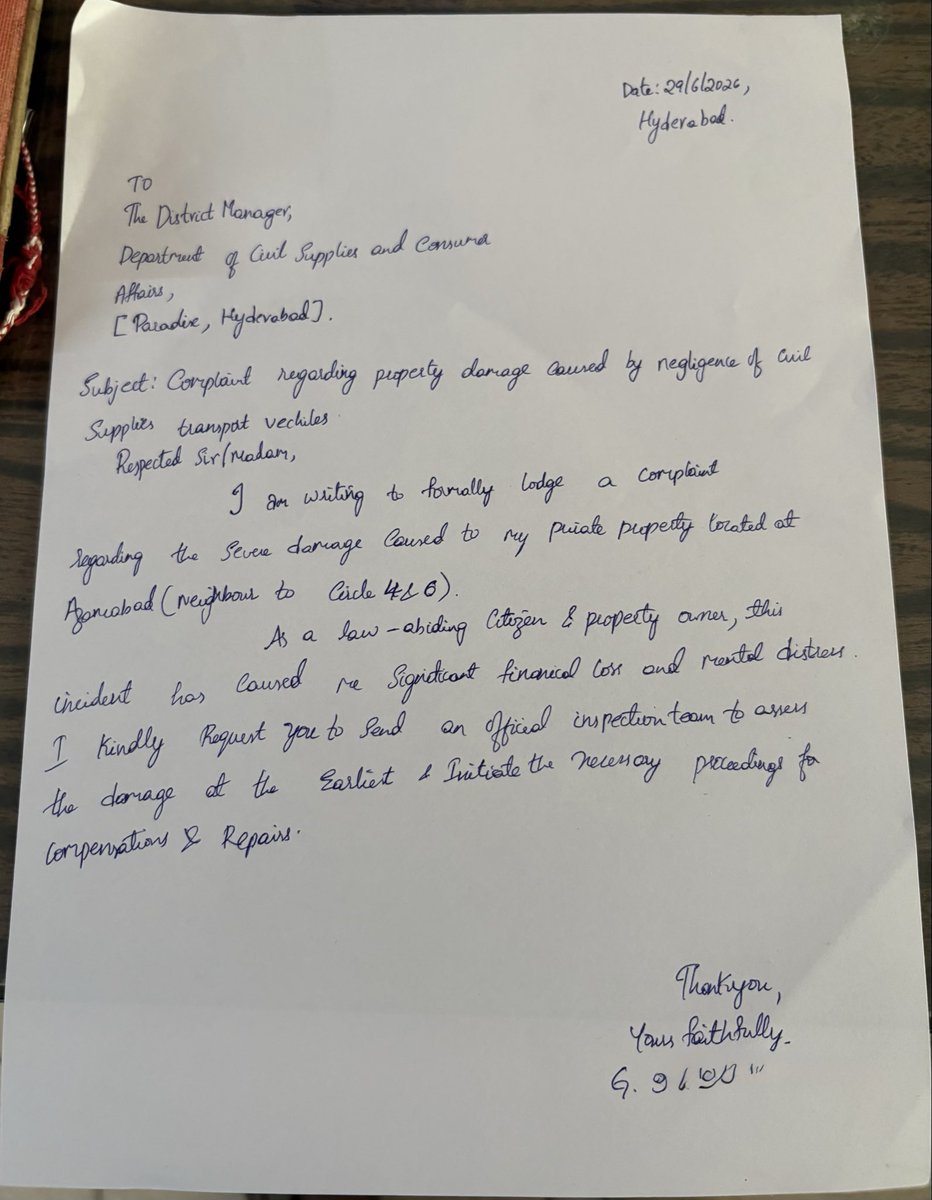 Date: 29/6/2026,
Hyderabad.
TO
The District Manager,
Department of Civil Supplies and Consumer
Affairs,
[Paradise, Hyderabad].
Subject: Complaint regarding property damage caused by negligence of Civil
Supplies transport vechiles.
Respected Sir/Madam,
I am writing to formally lodge a complaint
regarding the Severe damage Caused to my private property located at
Azamabad (neighbour to Circle 4 & 6).
As a law-abiding Citizen & property owner, this
incident has Caused me Significant financial loss and mental distress.
I Kindly Request You to Send an official inspection team to assess
the damage at the Earliest & Initiate the necessary proceedings for
compensations & Repairs.
Thankyou,
Yours faithfully.
G.